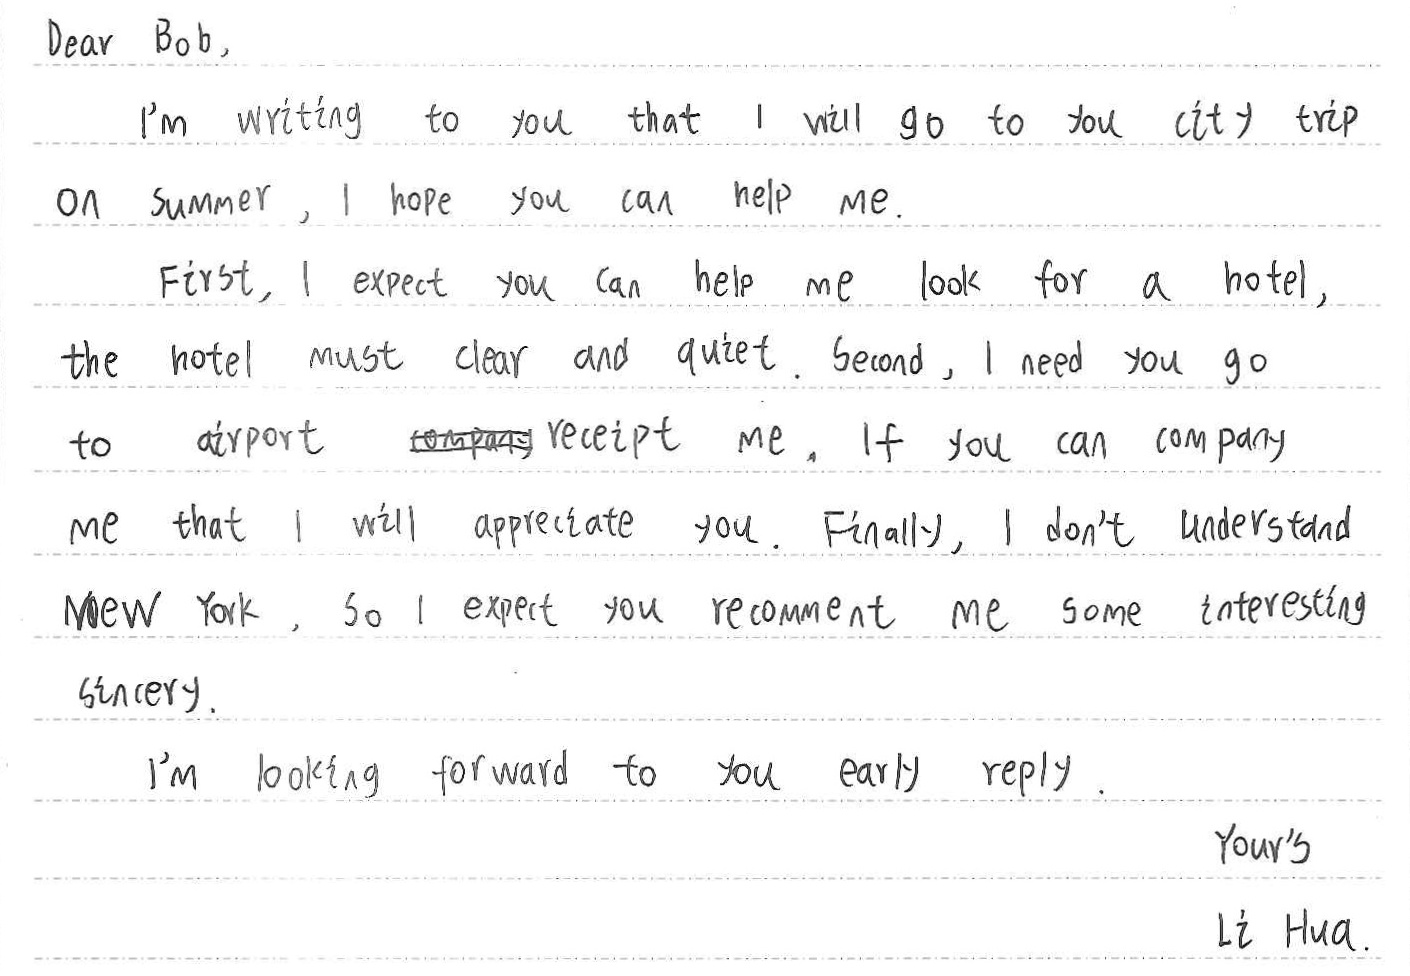 Dear Bob,
I'm writing to you that I will go to you city trip
on summer, I hope you can help me.
First, I expect you can help me look for a hotel,
the hotel must clear and quiet. Second, I need you go
to airport receipt me. If you can company
me that I will appreciate you. Finally, I don't understand
New York, so I expect you recomment me some interesting
sincery.
I'm looking forward to you early reply.
Your's
Li Hua.